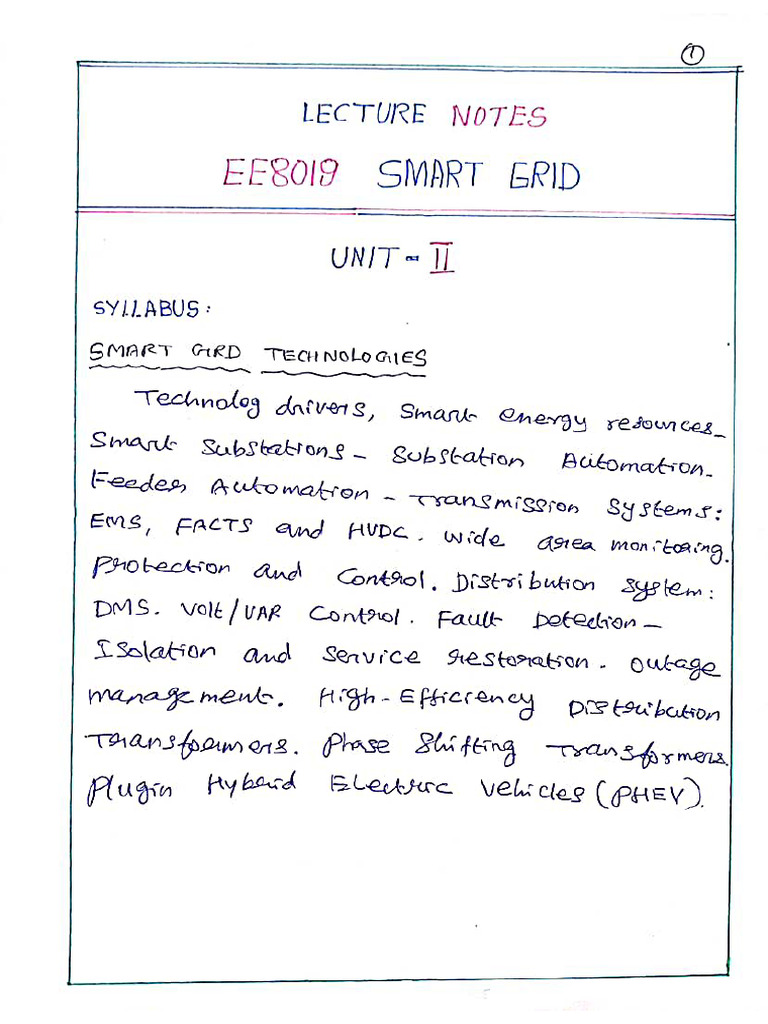 ①
LECTURE NOTES
EE8019 SMART GRID
UNIT - II
SYLLABUS:
SMART GIRD TECHNOLOGIES
Technolog drivers, Smart energy resources_
Smart Substations - Substation Automation.
Feeder Automation - Transmission Systems:
EMS, FACTS and HVDC. Wide area monitoring.
Protection and Control. Distribution system:
DMS. Volt/VAR Control. Fault Detection -
Isolation and Service restoration. Outage
management. High-Efficiency Distribution
Transformers. Phase Shifting Transformers.
Plugin Hybrid Electric Vehicles (PHEV).